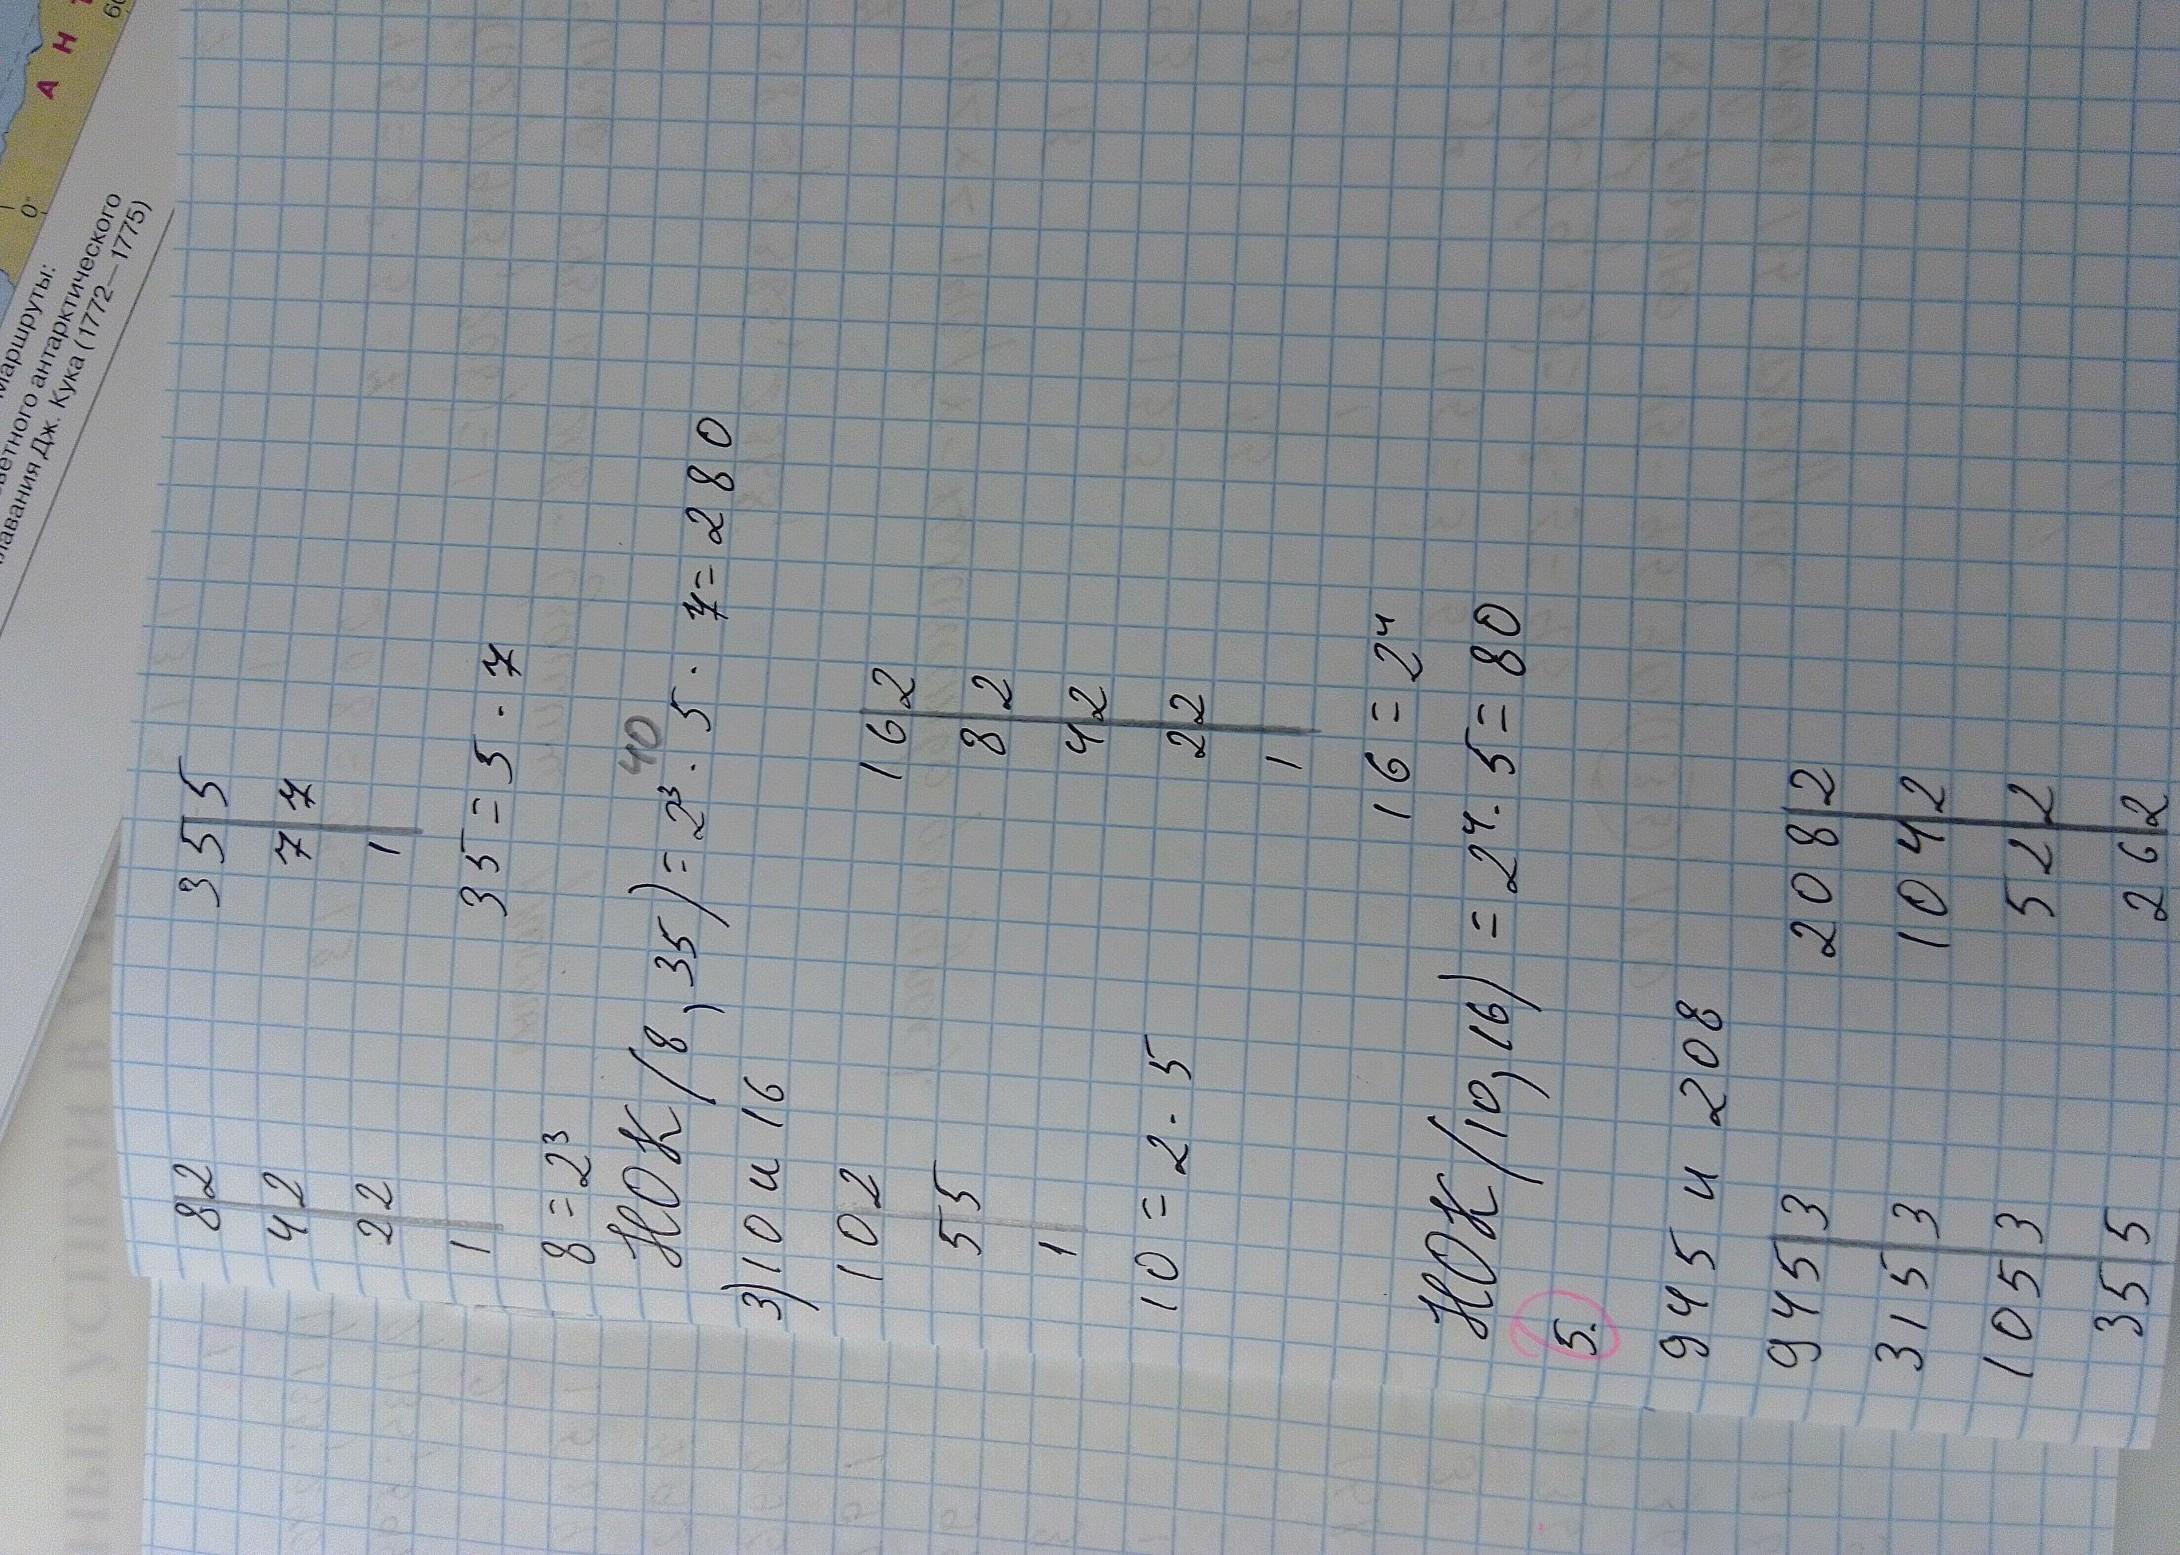 А Н Т
0°
60
Маршруты:
ветного антарктического
лавания Дж. Кука (1772—1775)
8 2 35 5
4 2 7 7
2 2 1
1 35 = 5 · 7
8 = 2³
40
НОК (8, 35) = 2³ · 5 · 7 = 280
3) 10 и 16
10 2 16 2
5 5 8 2
1 4 2
10 = 2 · 5 2 2
1
16 = 2⁴
НОК (10, 16) = 2⁴ · 5 = 80
5.
945 и 208
945 3 208 2
315 3 104 2
105 3 52 2
35 5 26 2